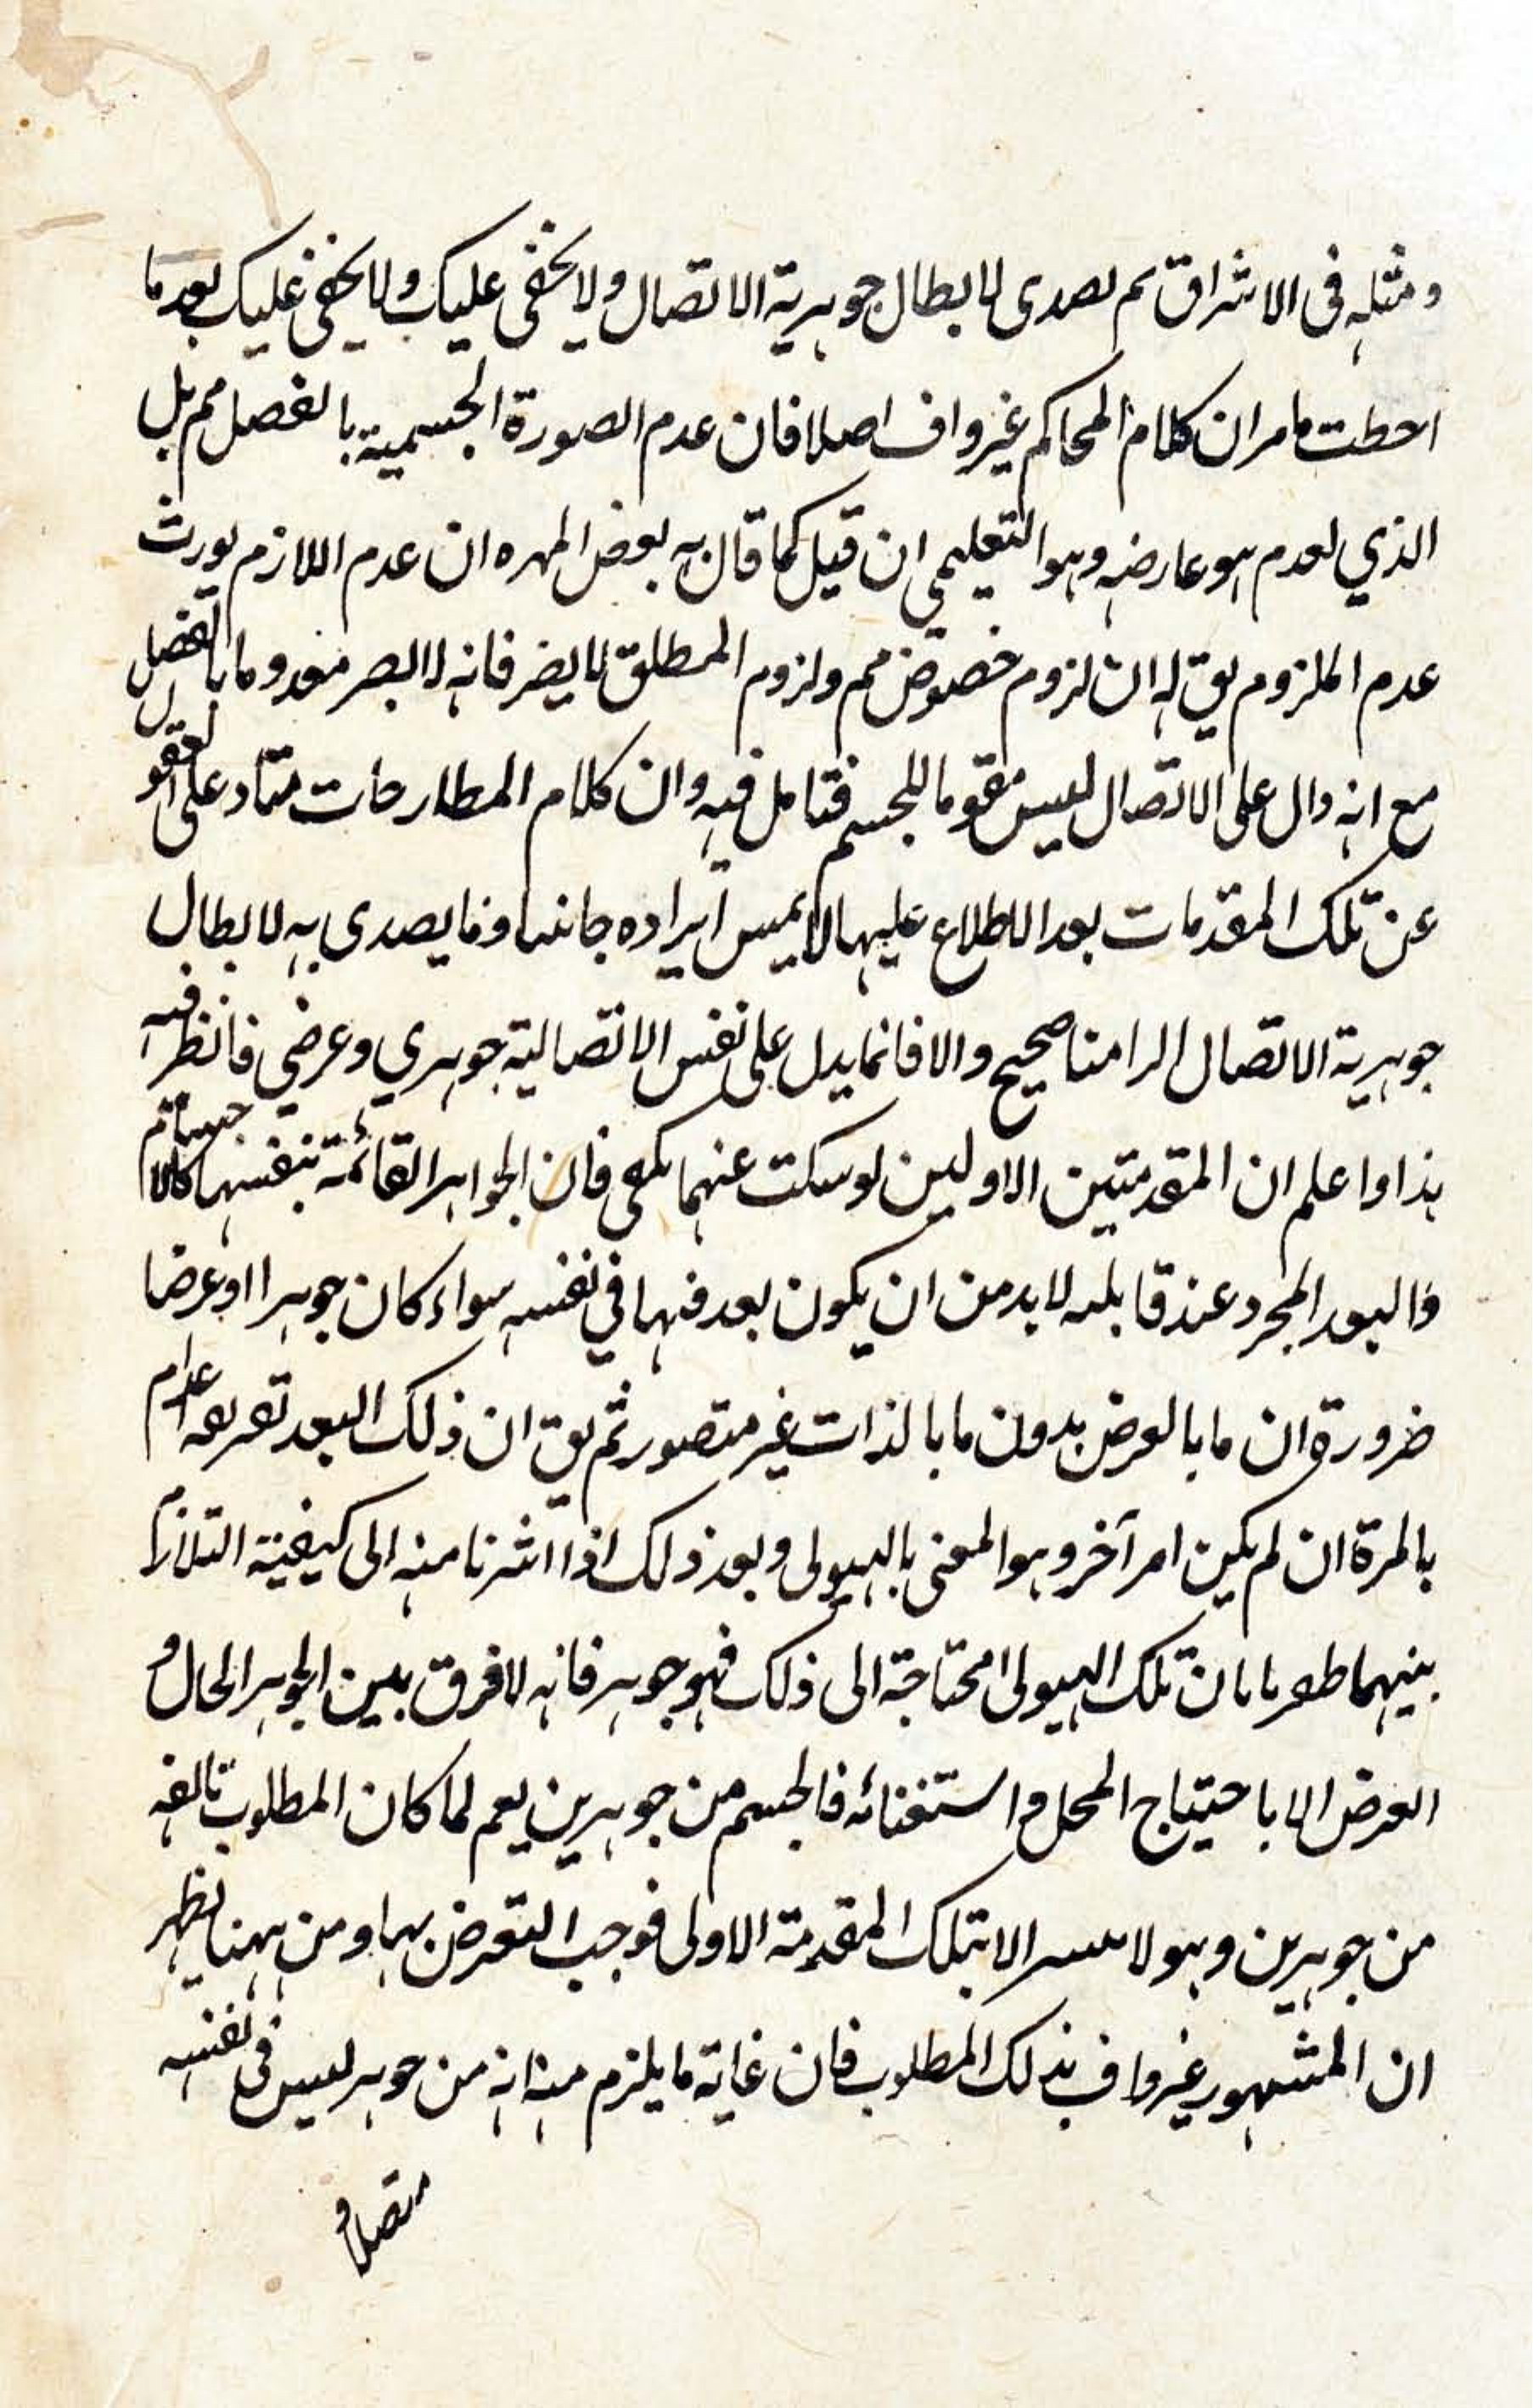 ومثله فى الاشراق ثم تصدى لابطال جوهرية الاتصال ولا يخفى عليك ولا يخفى عليك بعد ما
احطت مامر ان كلام المحاكم غير واف اصلا فان عدم الصورة الجسمية بالفصل مم بل
الذي لعدم هو عارضه وهو التعليمي ان قيل كما قال به بعض المهره ان عدم اللازم يورث
عدم الملزوم يق له ان لزوم خصوص مم ولزوم المطلق لا يضر فانه لا ايصر معدوما بالفصل
مع انه دال على الاتصال ليس مقوما للجسم فتامل فيه وان كلام المطارحات مناد على لعقول
عن تلك المقدمات بعد الاطلاع عليها لا ايراده جانبا وما يصدى به لابطال
جوهرية الاتصال الزامنا صحيح والا فانما يدل على نفس الاتصالية جوهري وعرضي فانظر فيه
هذا واعلم ان المقدمتين الاوليين لو سكت عنهما يكفى فان الجواهر القائمة بنفسها كالاجسام
والبعد المجرد عند قابله لا بد من ان يكون بعد منها في نفسه سواء كان جوهرا او عرضا
ضرورة ان ما بالعرض بدون ما بالذات غير متصور ثم يق ان ذلك البعد اعدام
بالمرة ان لم يكن امر آخر وهو المعنى بالهيولى وبعد ذلك اذا اشرنا منه الى كيفية التلازم
بينهما بان تلك الهيولى محتاجة الى ذلك فهو جوهر فانه لا فرق بين الجوهر الحال و
العرض الا باحتياج المحل و استغنائه فالجسم من جوهرين يعم لما كان المطلوب تالفه
من جوهرين وهو لا الا بتلك المقدمة الاولى فوجب التعرض بها ومن ههنا يظهر
ان المشهور غير واف بذلك المطلوب فان غاية ما يلزم منه انه من جوهر ليس فى نفسه
متصلا و